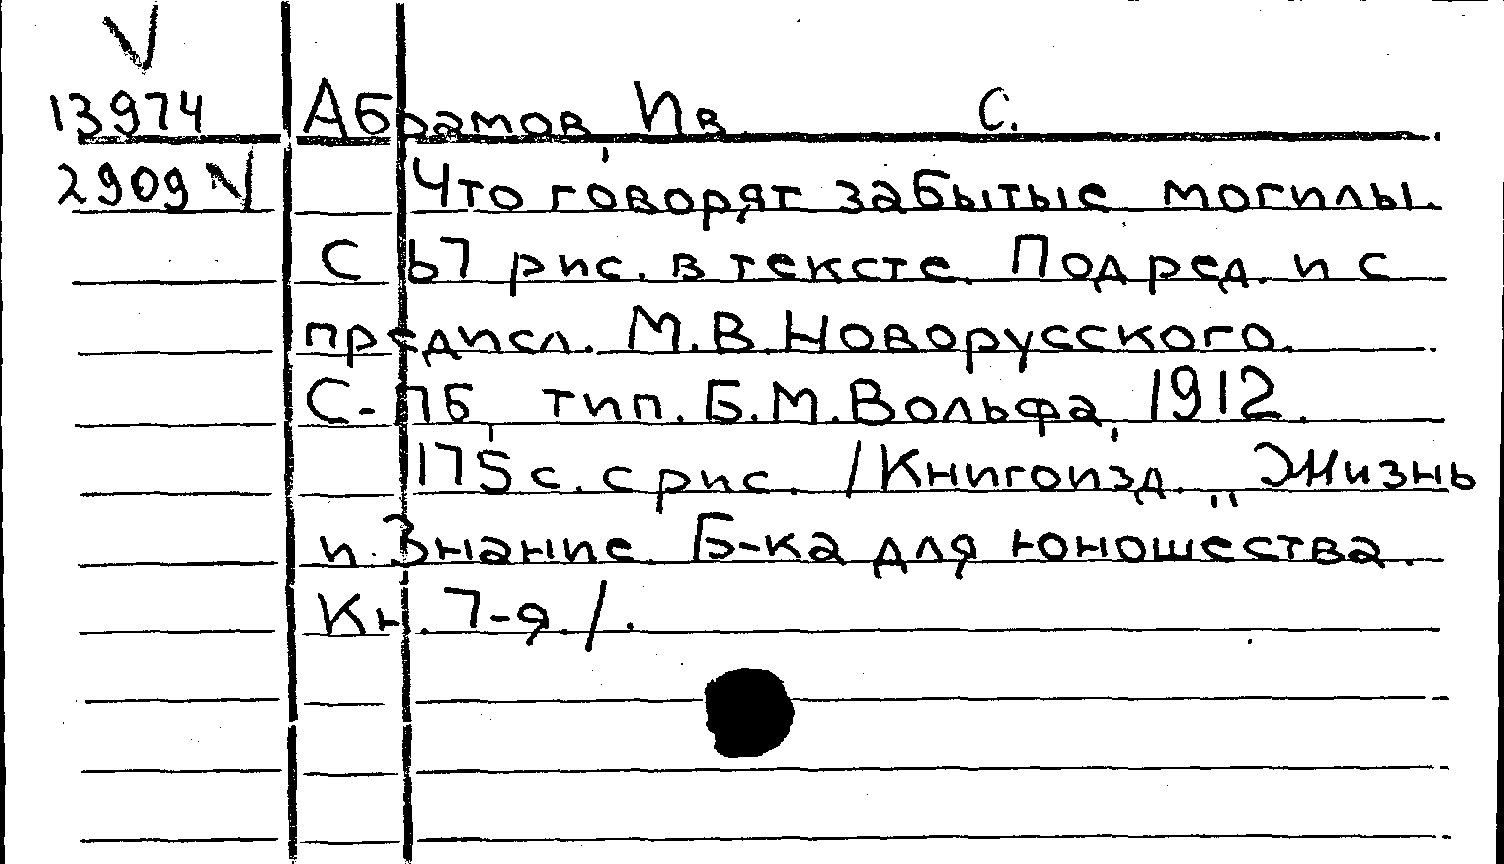 V
13974 Абрамов, Ив. С.
2909 V Что говорят забытые могилы.
С 67 рис. в тексте. Под ред. и с
предисл. М.В. Новорусского.
С-Пб, тип. Б.М. Вольфа, 1912.
175 с. с рис. /Книгоизд. „Жизнь
и Знание. Б-ка для юношества.
Кн. 7-я./.